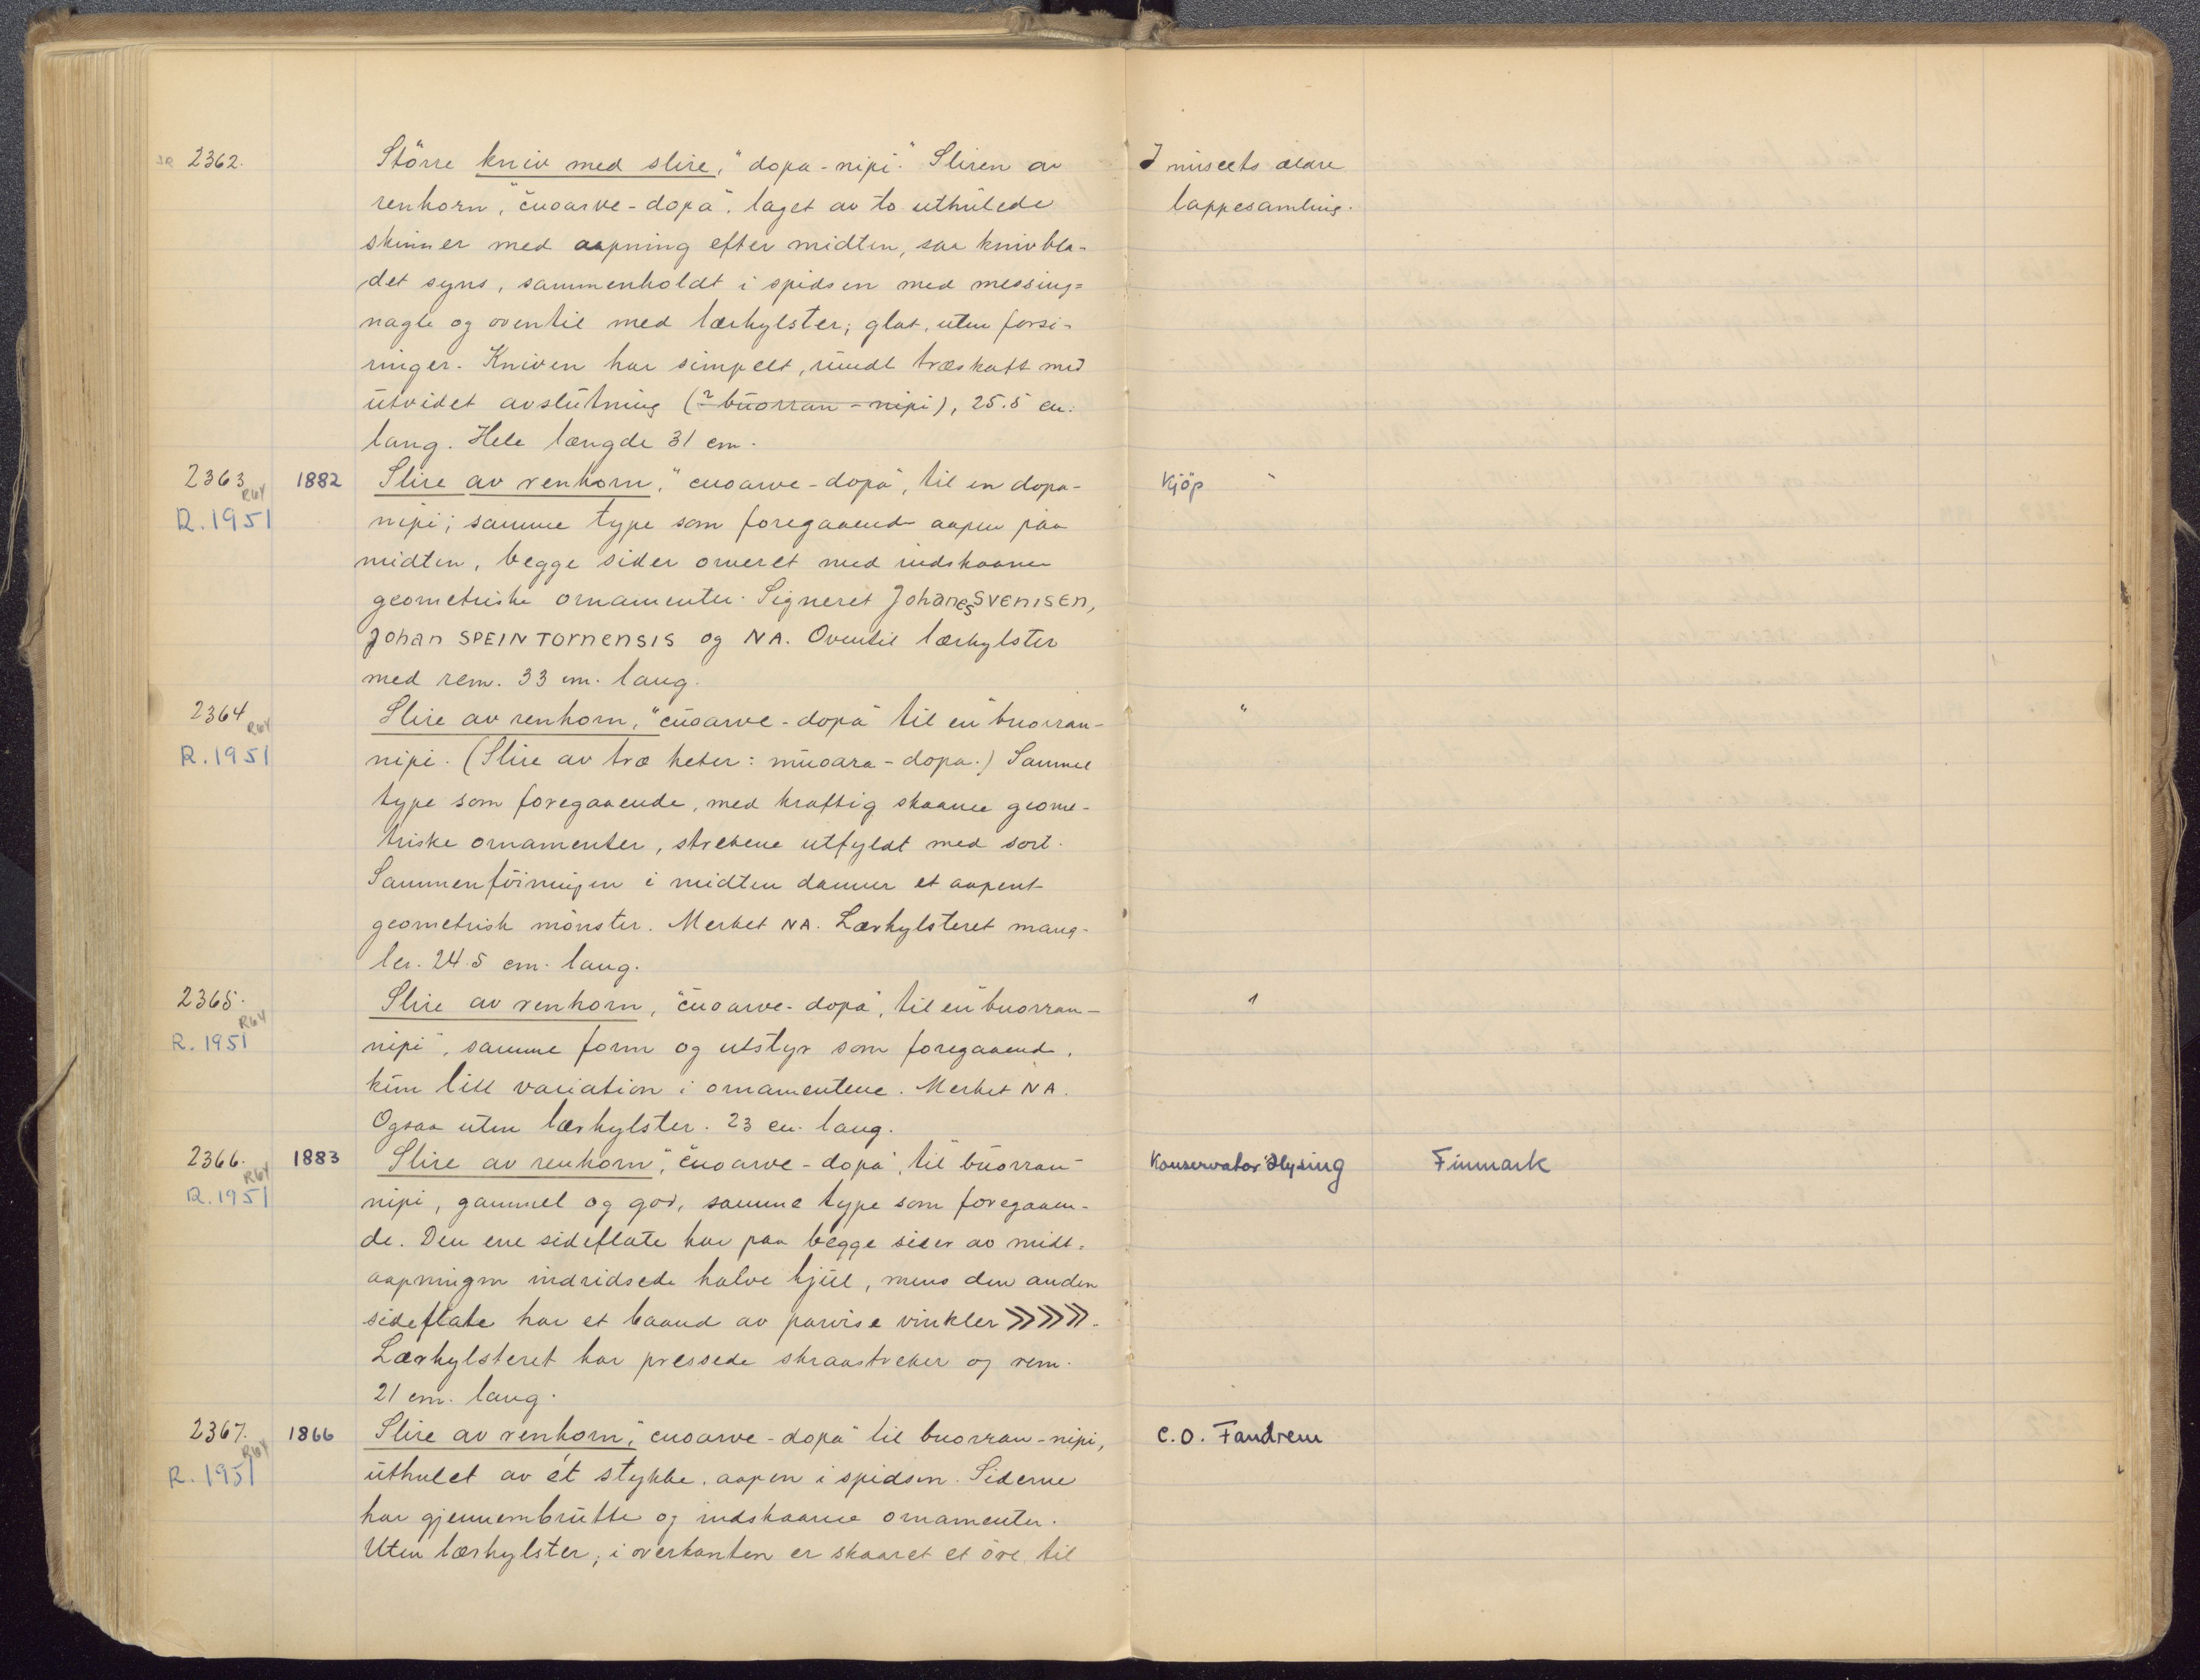 2362.
Större kniv med slire, "dopa-nipi." Sliren av
I museets ældre
renhorn, "čuoarve-dopa", laget av to uthulede
lappesamling.
skinner med aapning efter midten, saa knivbla-
det syns, sammenholdt i spidsen med messing=
nagle og oventil med lærhylster; glat, uten forsi-
ringer. Kniven har simpelt, rundt træskaft med
utvidet avslutning (? buorran-nipi), 25.5 cm.
lang. Hele længde 31 cm.
2363
R64
1882
Slire av renhorn, "cuoarve-dopa", til en dopa-
Kjöp "
R.1951
nipi; samme type som foregaaende aapen paa
midten, begge sider orneret med indskaarne
geometriske ornamenter. Signeret Johanes SVENISEN,
Johan SPEIN TORNENSIS og NA. Oventil lærhylster
med rem. 33 cm. lang.
2364
R64
Slire av renhorn, "cuoarve-dopa" til en "buorran-
"
R.1951
nipi. (Slire av træ heter: muoara-dopa.) Samme
type som foregaaende, med kraftig skaarne geome-
triske ornamenter, strekene utfyldt med sort.
Sammenföiningen i midten danner et aapent
geometrisk mönster. Merket NA. Lærhylsteret mang-
ler. 24.5 cm. lang.
2365.
R64
Slire av renhorn, "čuoarve-dopa", til en "buorran-
"
R.1951
nipi", samme form og utstyr som foregaaende,
kun litt variation i ornamentene. Merket NA.
Ogsaa uten lærhylster. 23 cm. lang.
2366.
R64
1883
Slire av renhorn, "čuoarve-dopa", til "buorran-
Konservator Hysing
Finmark
R.1951
nipi, gammel og god, samme type som foregaaen-
de. Den ene sideflate har paa begge sider av midt-
aapningen indridsede halve hjul, mens den anden
sideflate har et baand av parvise vinkler »»».
Lærhylsteret har pressede skraastreker og rem.
21 cm. lang.
2367.
R64
1866
Slire av renhorn, "cuoarve-dopa" til buorran-nipi,
C.O. Fandrem
R.1951
uthulet av ét stykke, aapen i spidsen. Siderne
har gjennembrutte og indskaarne ornamenter.
Uten lærhylster; i overkanten er skaaret et öre til